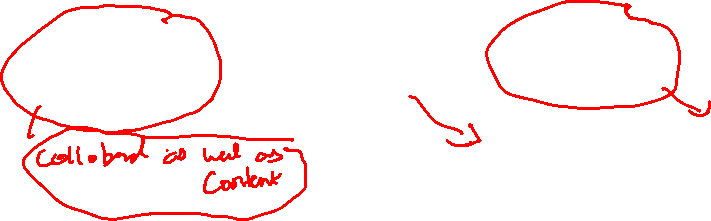 Collabord as well as
Content